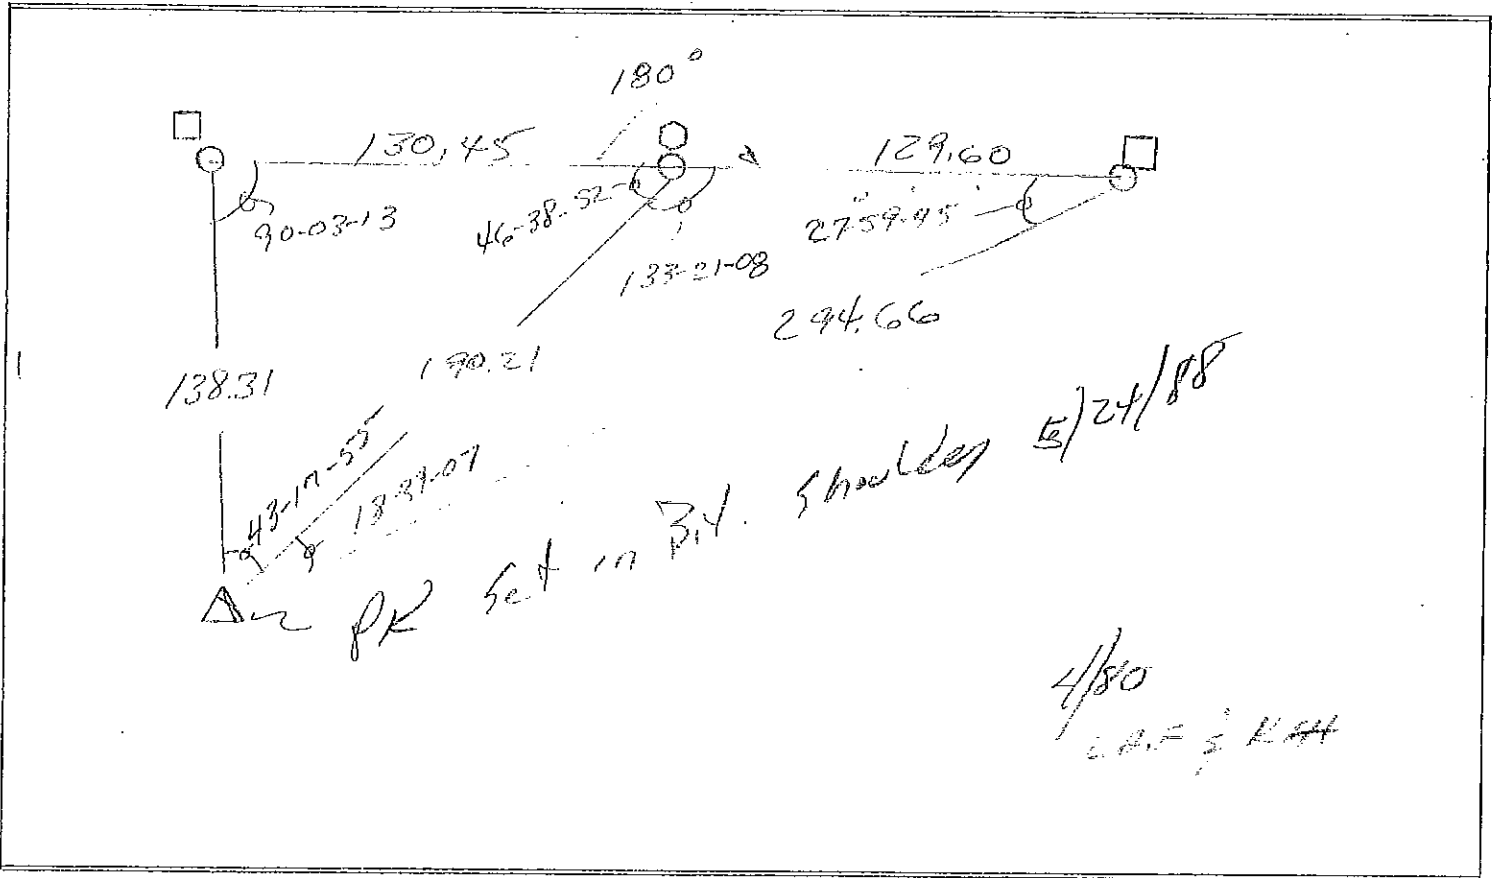 180°
130.45
129.60
90-03-13
46-38-52
27°59-45
133-21-08
294.66
190.21
138.31
43-17-55
18-39-07
PK Set in Bit. Shoulder 5/24/88
4/80